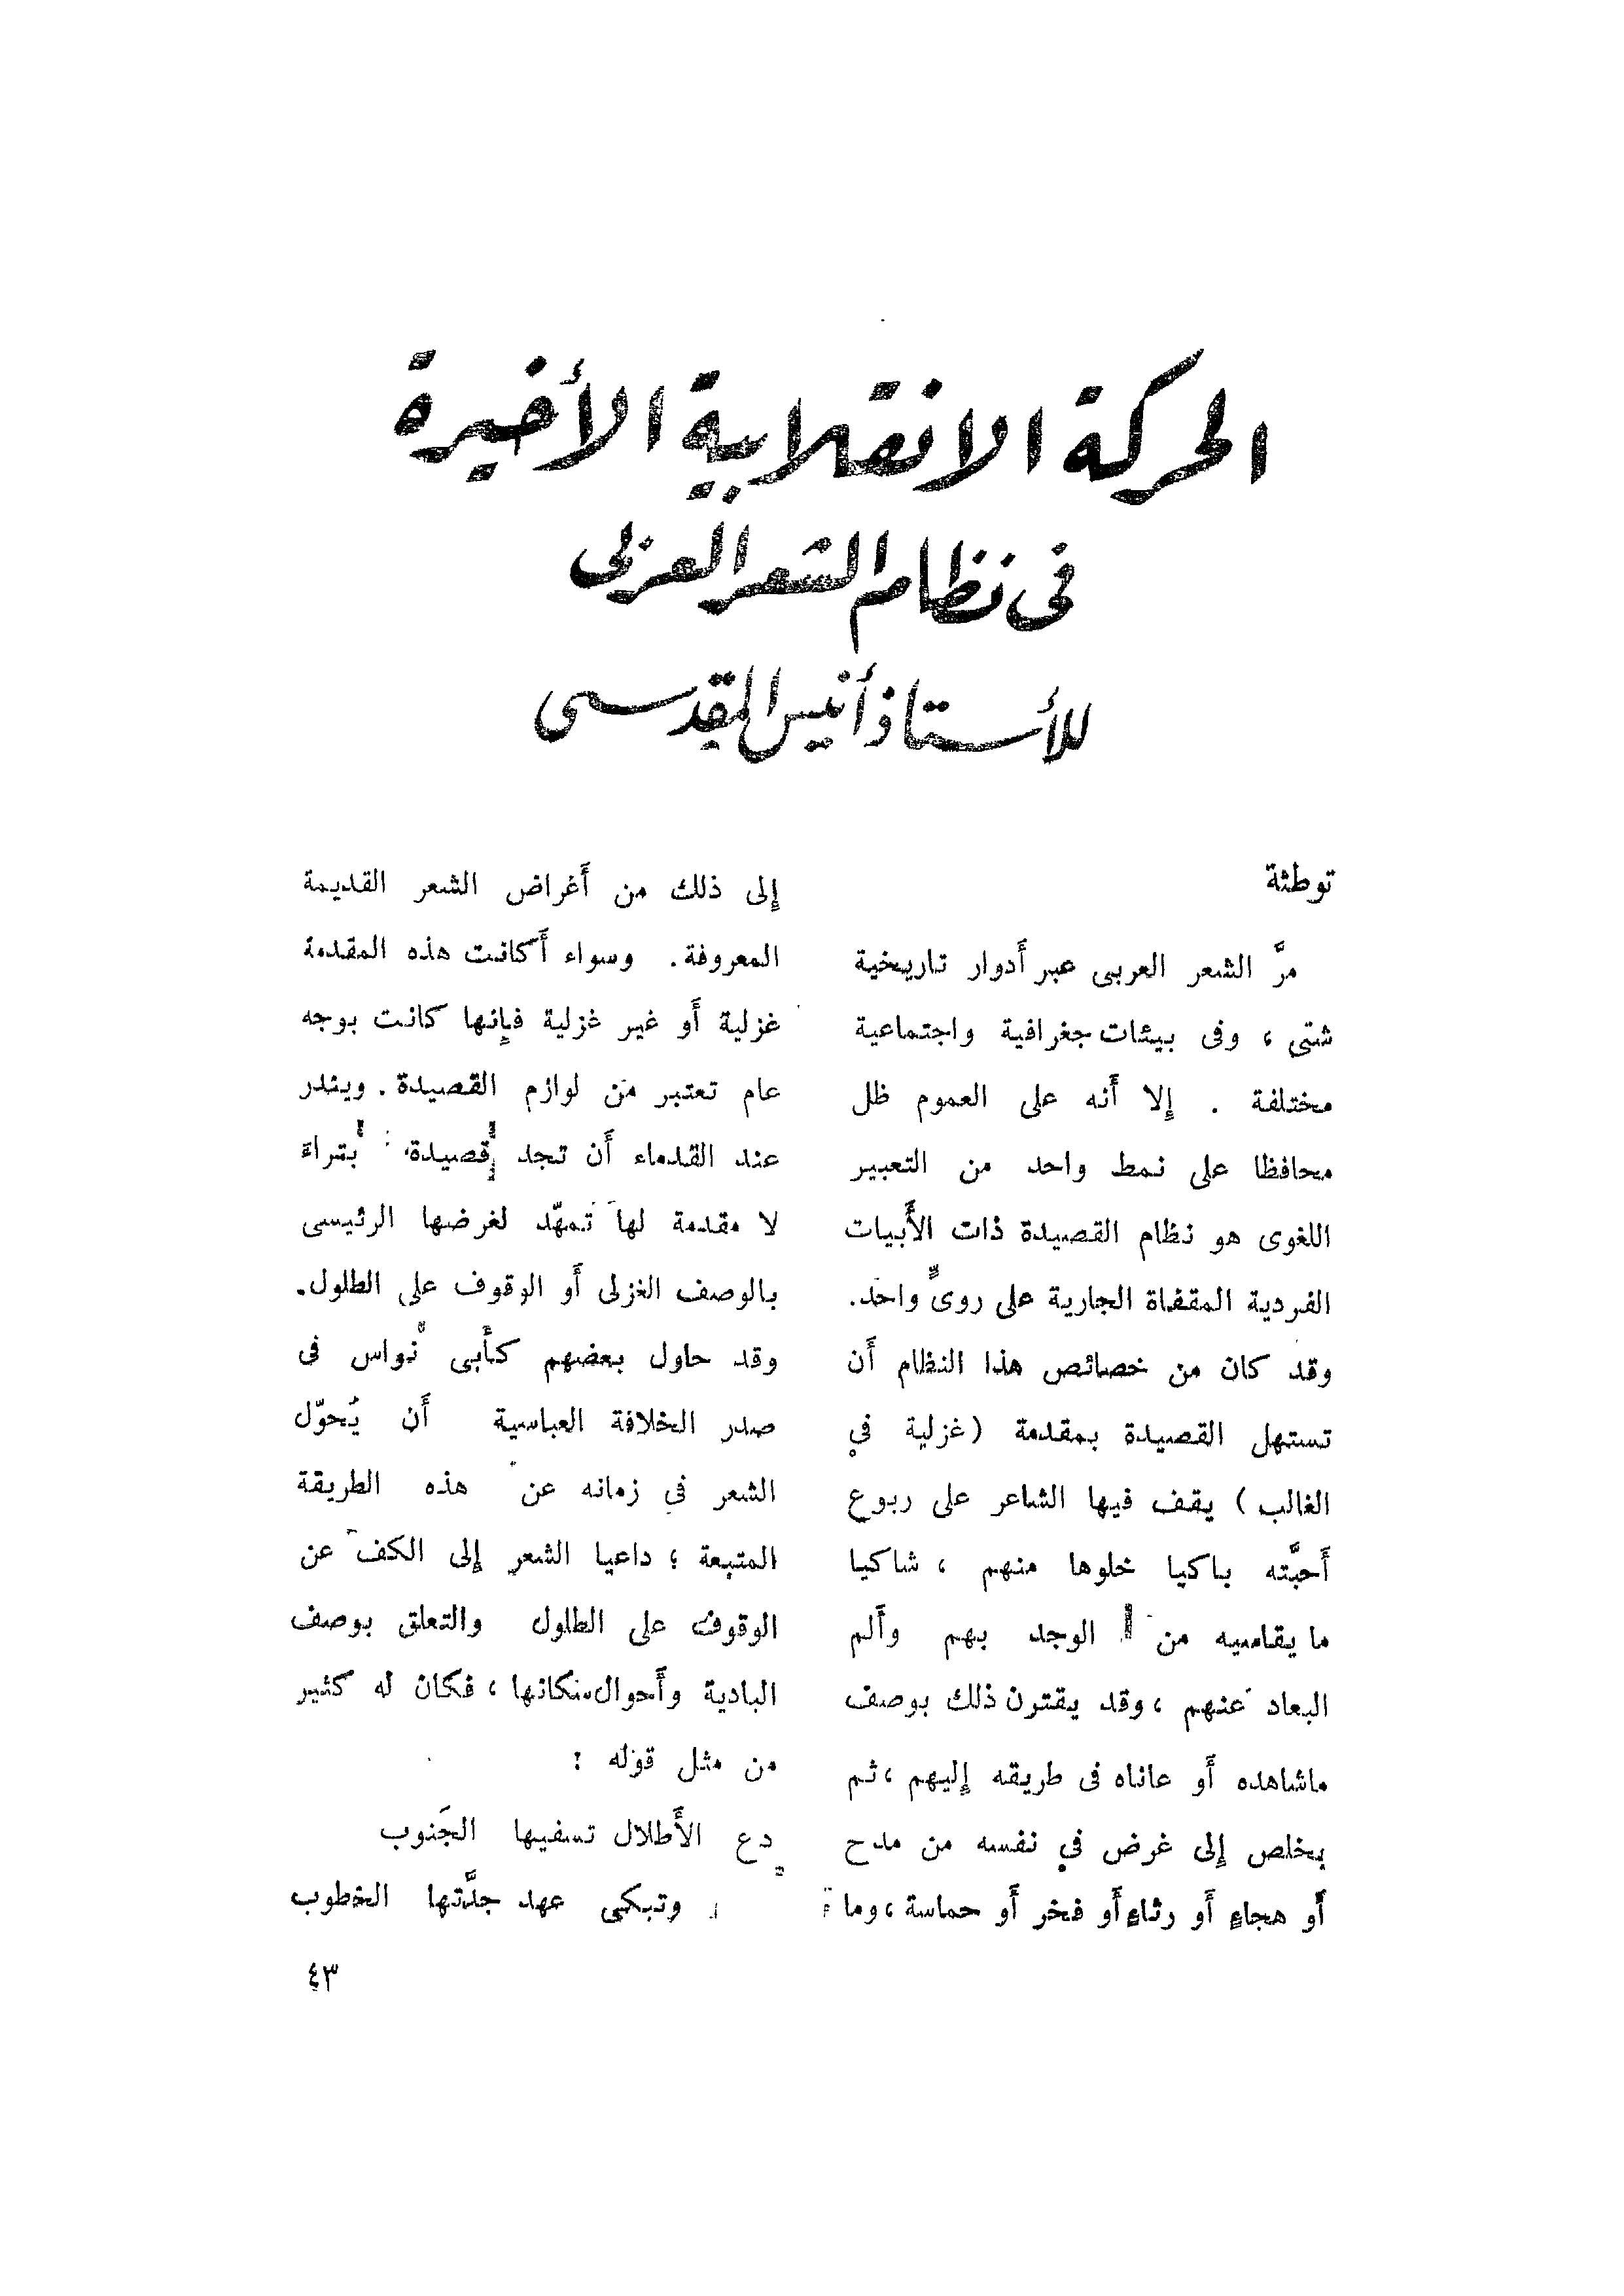 الحركة الانقلابية الأخيرة
فى نظام الشعر العربى
للأستاذ أنيس المقدسى
توطئة
مرَّ الشعر العربى عبر أَدوار تاريخية
شتى ، وفى بيئات جغرافية واجتماعية
مختلفة . إِلا أَنه على العموم ظل
محافظا على نمط واحد من التعبير
اللغوى هو نظام القصيدة ذات الأَبيات
الفردية المقفاة الجارية على روىٍّ واحد.
وقد كان من خصائص هذا النظام أَن
تستهل القصيدة بمقدمة (غزلية في
الغالب) يقف فيها الشاعر على ربوع
أَحبَّته باكيا خلوها منهم ، شاكيا
ما يقاسيه من الوجد بهم وأَلم
البعاد عنهم ، وقد يقترن ذلك بوصف
ماشاهده أَو عاناه فى طريقه إِليهم ، ثم
يخلص إِلى غرض في نفسه من مدح
أَو هجاءٍ أَو رثاءٍ أَو فخر أَو حماسة ، وما
إِلى ذلك من أَغراض الشعر القديمة
المعروفة . وسواء أَكانت هذه المقدمة
غزلية أَو غير غزلية فإِنها كانت بوجه
عام تعتبر من لوازم القصيدة . ويندر
عند القدماء أَن تجد قصيدة بتراءَ
لا مقدمة لها تمهّد لغرضها الرئيسى
بالوصف الغزلى أَو الوقوف على الطلول.
وقد حاول بعضهم كأَبى نواس فى
صدر الخلافة العباسية أَن يُحوّل
الشعر في زمانه عن هذه الطريقة
المتبعة ؛ داعيا الشعر إِلى الكف عن
الوقوف على الطلول والتعلق بوصف
البادية وأَحوال سكانها ، فكان له كثير
من مثل قوله :
دع الأَطلال تسفيها الجَنوب
وتبكى عهد جدَّتها الخطوب
٤٣